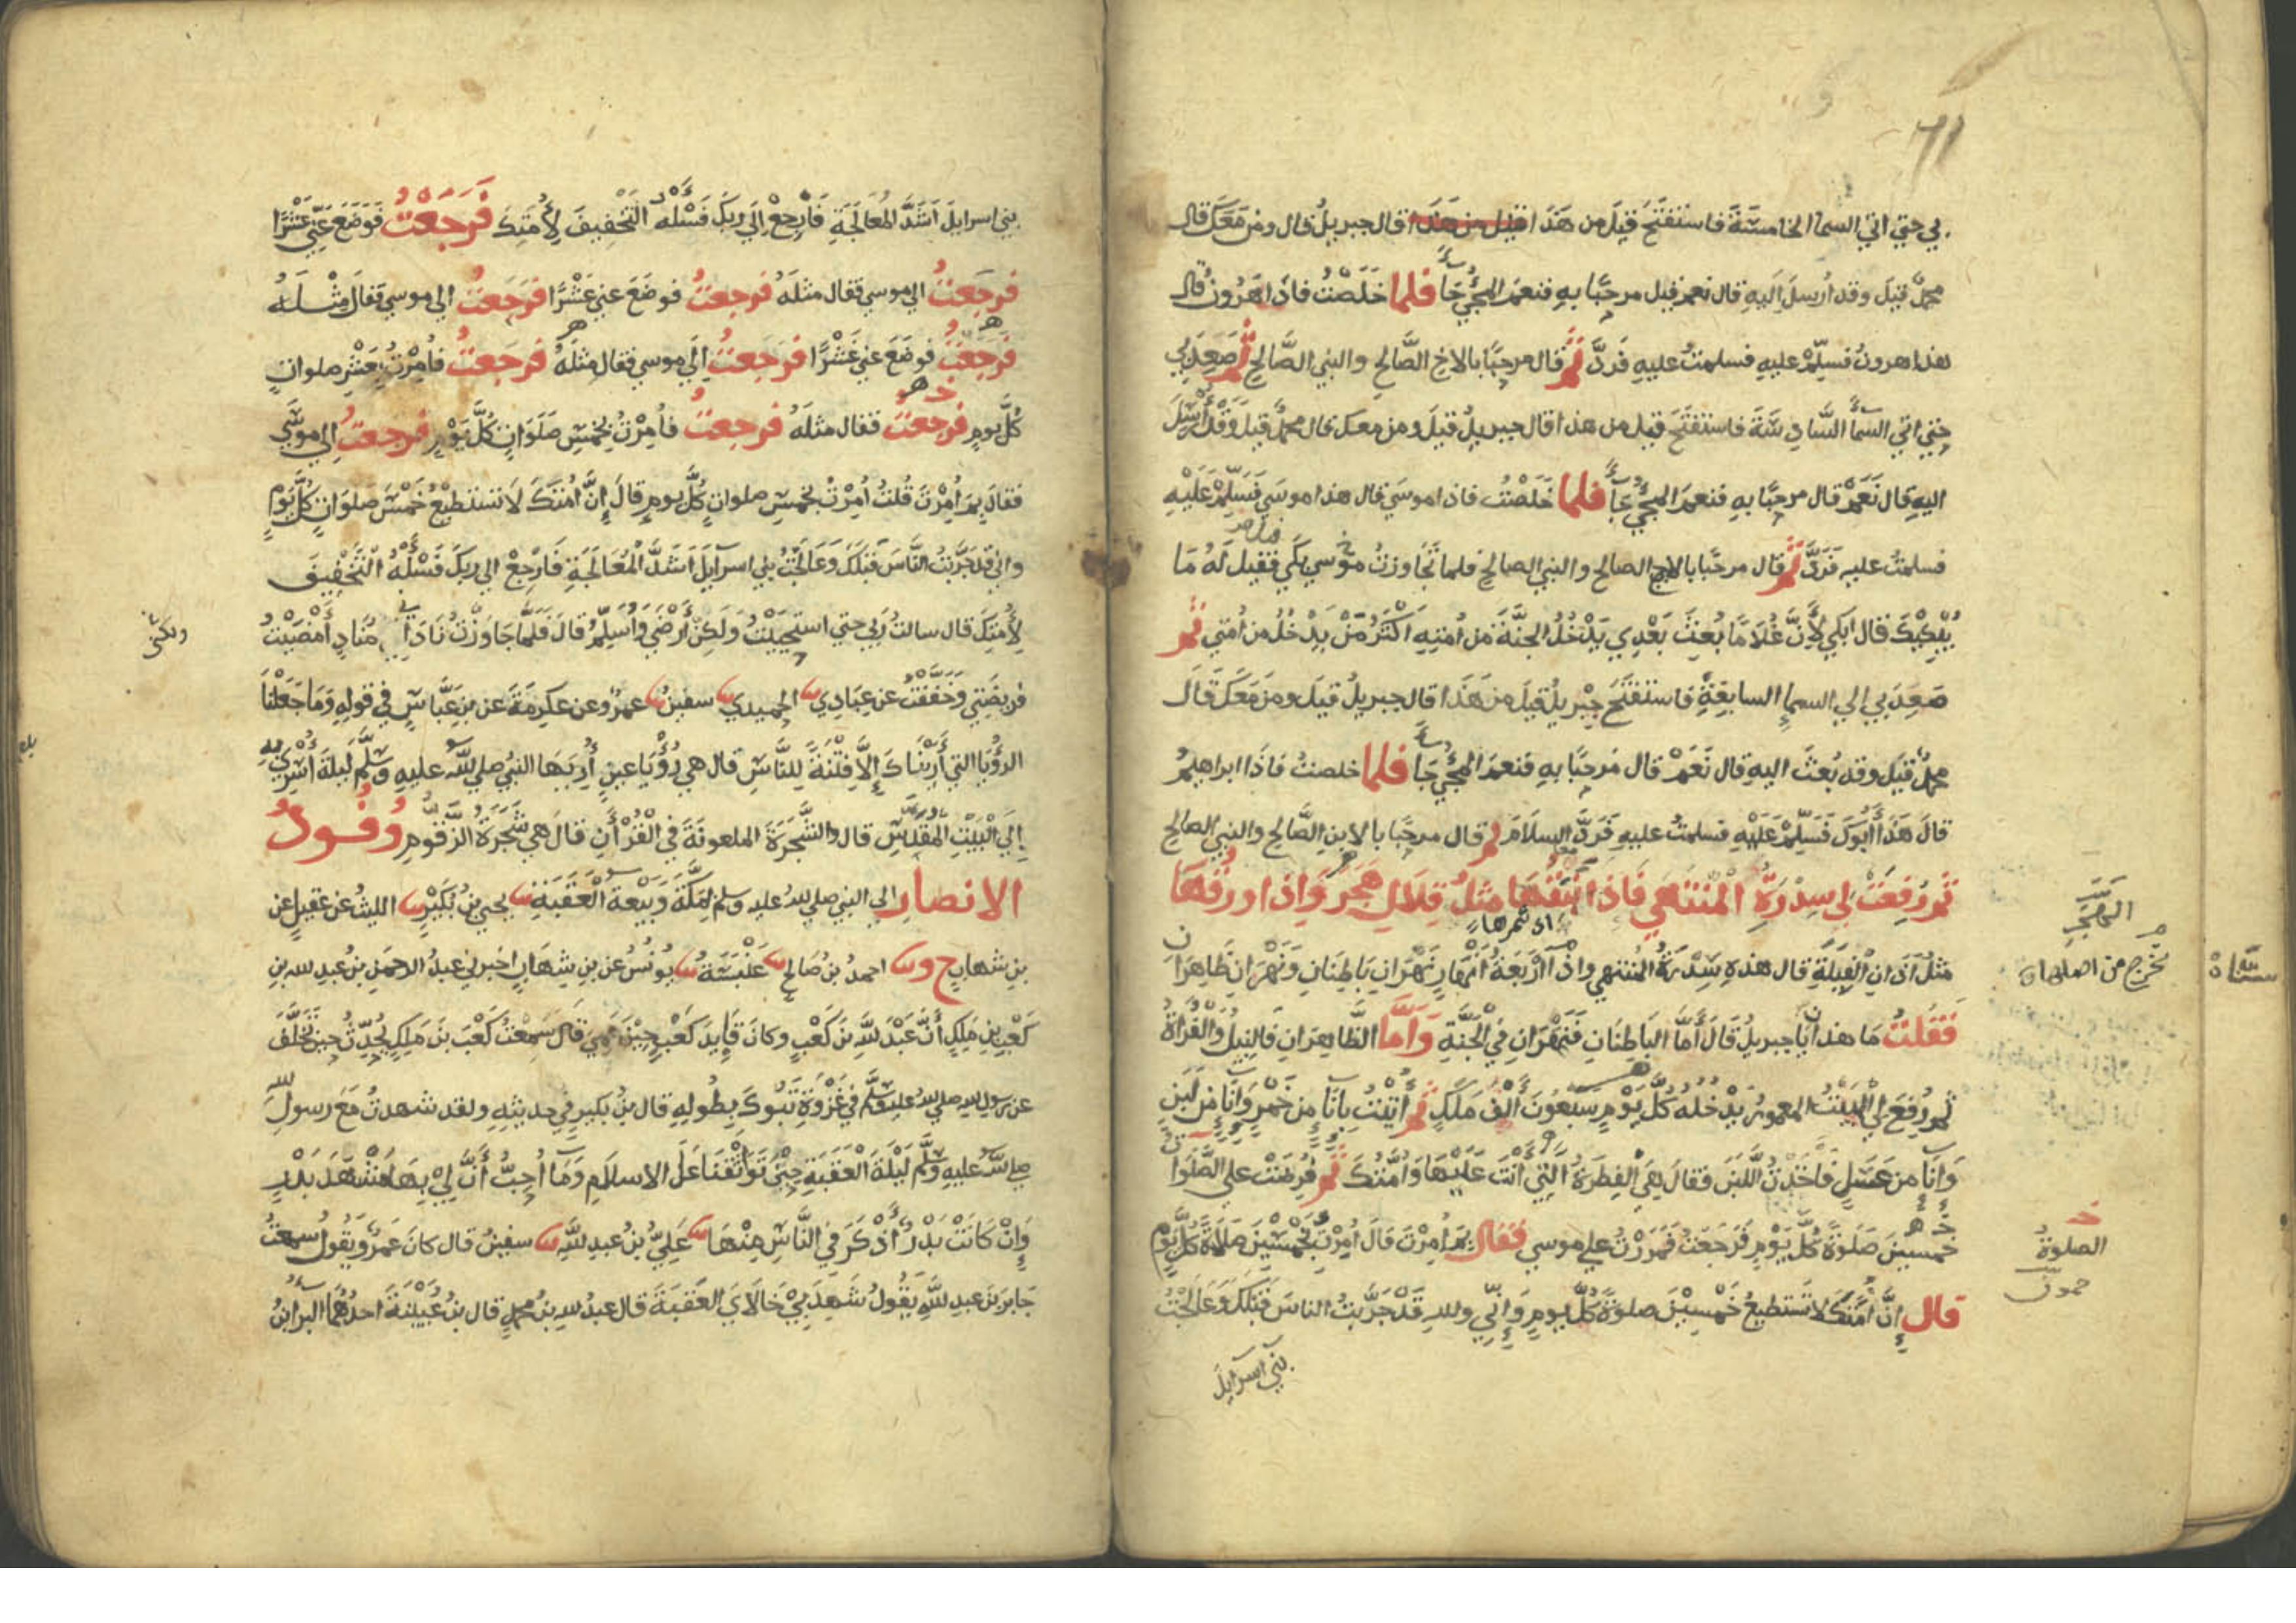 71
بي حتي اتي السما الخامسة فاستفتح قيل من هذا قيل من هذا قال جبريل قال ومن معك قال
محمد قيل وقد ارسل اليه قال نعم قيل مرحبا به فنعم المجي جاء فلما خلصت فاذا هرون قال
هذا هرون فسلم عليه فسلمت عليه فرد ثم قال مرحبا بالاخ الصالح والنبي الصالح ثم صعد بي
حتي اتي السماء السادسة فاستفتح قيل من هذا قال جبريل قيل ومن معك قال محمد قيل وقد ارسل
اليه قال نعم قال مرحبا به فنعم المجي جاء فلما خلصت فاذا موسي قال هذا موسي فسلم عليه
فسلمت عليه فرد ثم قال مرحبا بالاخ الصالح والنبي الصالح فلما تجاوزت موسي بكي فقيل له ما
يبكيك قال ابكي لأن غلاما بعث بعدي يدخل الجنة من امته اكثر من يدخل من امتي ثم
صعد بي الي السما السابعة فاستفتح جبريل قيل من هذا قال جبريل قيل ومن معك قال
محمد قيل وقد بعث اليه قال نعم قال مرحبا به فنعم المجي جاء فلما خلصت فاذا ابراهيم
قال هذا أبوك فسلم عليه فسلمت عليه فرد السلام ثم قال مرحبا بالابن الصالح والنبي الصالح
ثم رفعت لي سدرة المنتهي فاذا نبقها مثل قلال هجر واذا ورقها
اي ثمرها
مثل آذان الفيلة قال هذه سدرة المنتهي واذا أربعة أنهار نهران باطنان ونهران ظاهران
فقلت ما هذان يا جبريل قال أما الباطنان فنهران في الجنة وأما الظاهران فالنيل والفراة
ثم رفع لي البيت المعمور يدخله كل يوم سبعون ألف ملك ثم أتيت باناء من خمر واناء من لبن
واناء من عسل فاخذت اللبن فقال هي الفطرة التي أنت عليها وامتك ثم فرضت علي الصلوات
خمسين صلوة كل يوم فرجعت فمررت علي موسي فقال بم أمرت قال أمرت بخمسين صلاة كل يوم
قال إن أمتك لا تستطيع خمسين صلوة كل يوم وإني والله قد جربت الناس قبلك وعالجت
بني اسرايل
يخرج من اصلها
الصلوة
بني اسرايل اشد المعالجة فارجع إلي ربك فسئله التخفيف لأمتك فرجعت فوضع عني عشرا
فرجعت الي موسي فقال مثله فرجعت فوضع عني عشرا فرجعت الي موسي فقال مثله
فرجعت فوضع عني عشرا فرجعت إلي موسي فقال مثله فرجعت فأمرت بعشر صلوات
كل يوم فرجعت فقال مثله فرجعت فأمرت بخمس صلوات كل يوم فرجعت الي موسي
فقال بم أمرت قلت أمرت بخمس صلوات كل يوم قال إن أمتك لا تستطيع خمس صلوات كل يوم
واني قد جربت الناس قبلك وعالجت بني اسرآيل أشد المعالجة فارجع الي ربك فسئله التخفيف
لأمتك قال سالت ربي حتي استحييت ولكن أرضي وأسلم قال فلما جاوزت نادي مناد أمضيت
ولكني
فريضتي وخففت عن عبادي الحميدي سفين عمرو عن عكرمة عن بن عباس في قوله وما جعلنا
الرؤيا التي أريناك إلا فتنة للناس قال هي رؤيا عين أريها النبي صلي الله عليه وسلم ليلة أسري به
إلي البيت المقدس قال والشجرة الملعونة في القرآن قال هي شجرة الزقوم وفود
الانصار الي النبي صلي الله عليه وسلم بمكة وبيعة العقبة يحيي بن بكير الليث عن عقيل عن
بن شهاب ح و احمد بن صالح عنبسة يونس عن بن شهاب اخبرني عبد الرحمن بن عبد الله بن
كعب بن ملك أن عبد الله بن كعب وكان قايد كعب حين عمي قال سمعت كعب بن ملك يحدث حين تخلف
عن رسول الله صلي الله عليه وسلم في غزوة تبوك بطوله قال بن بكير في حديثه ولقد شهدت مع رسول الله
صلي الله عليه وسلم ليلة العقبة حين تواثقنا علي الاسلام وما أحب أن لي بها مشهد بدر
وإن كانت بدر أذكر في الناس منها علي بن عبد الله سفين قال كان عمرو يقول سمعت
جابر بن عبد الله يقول شهد بي خالاي العقبة قال عبد الله بن محمد قال بن عيينة احدهما البرا بن